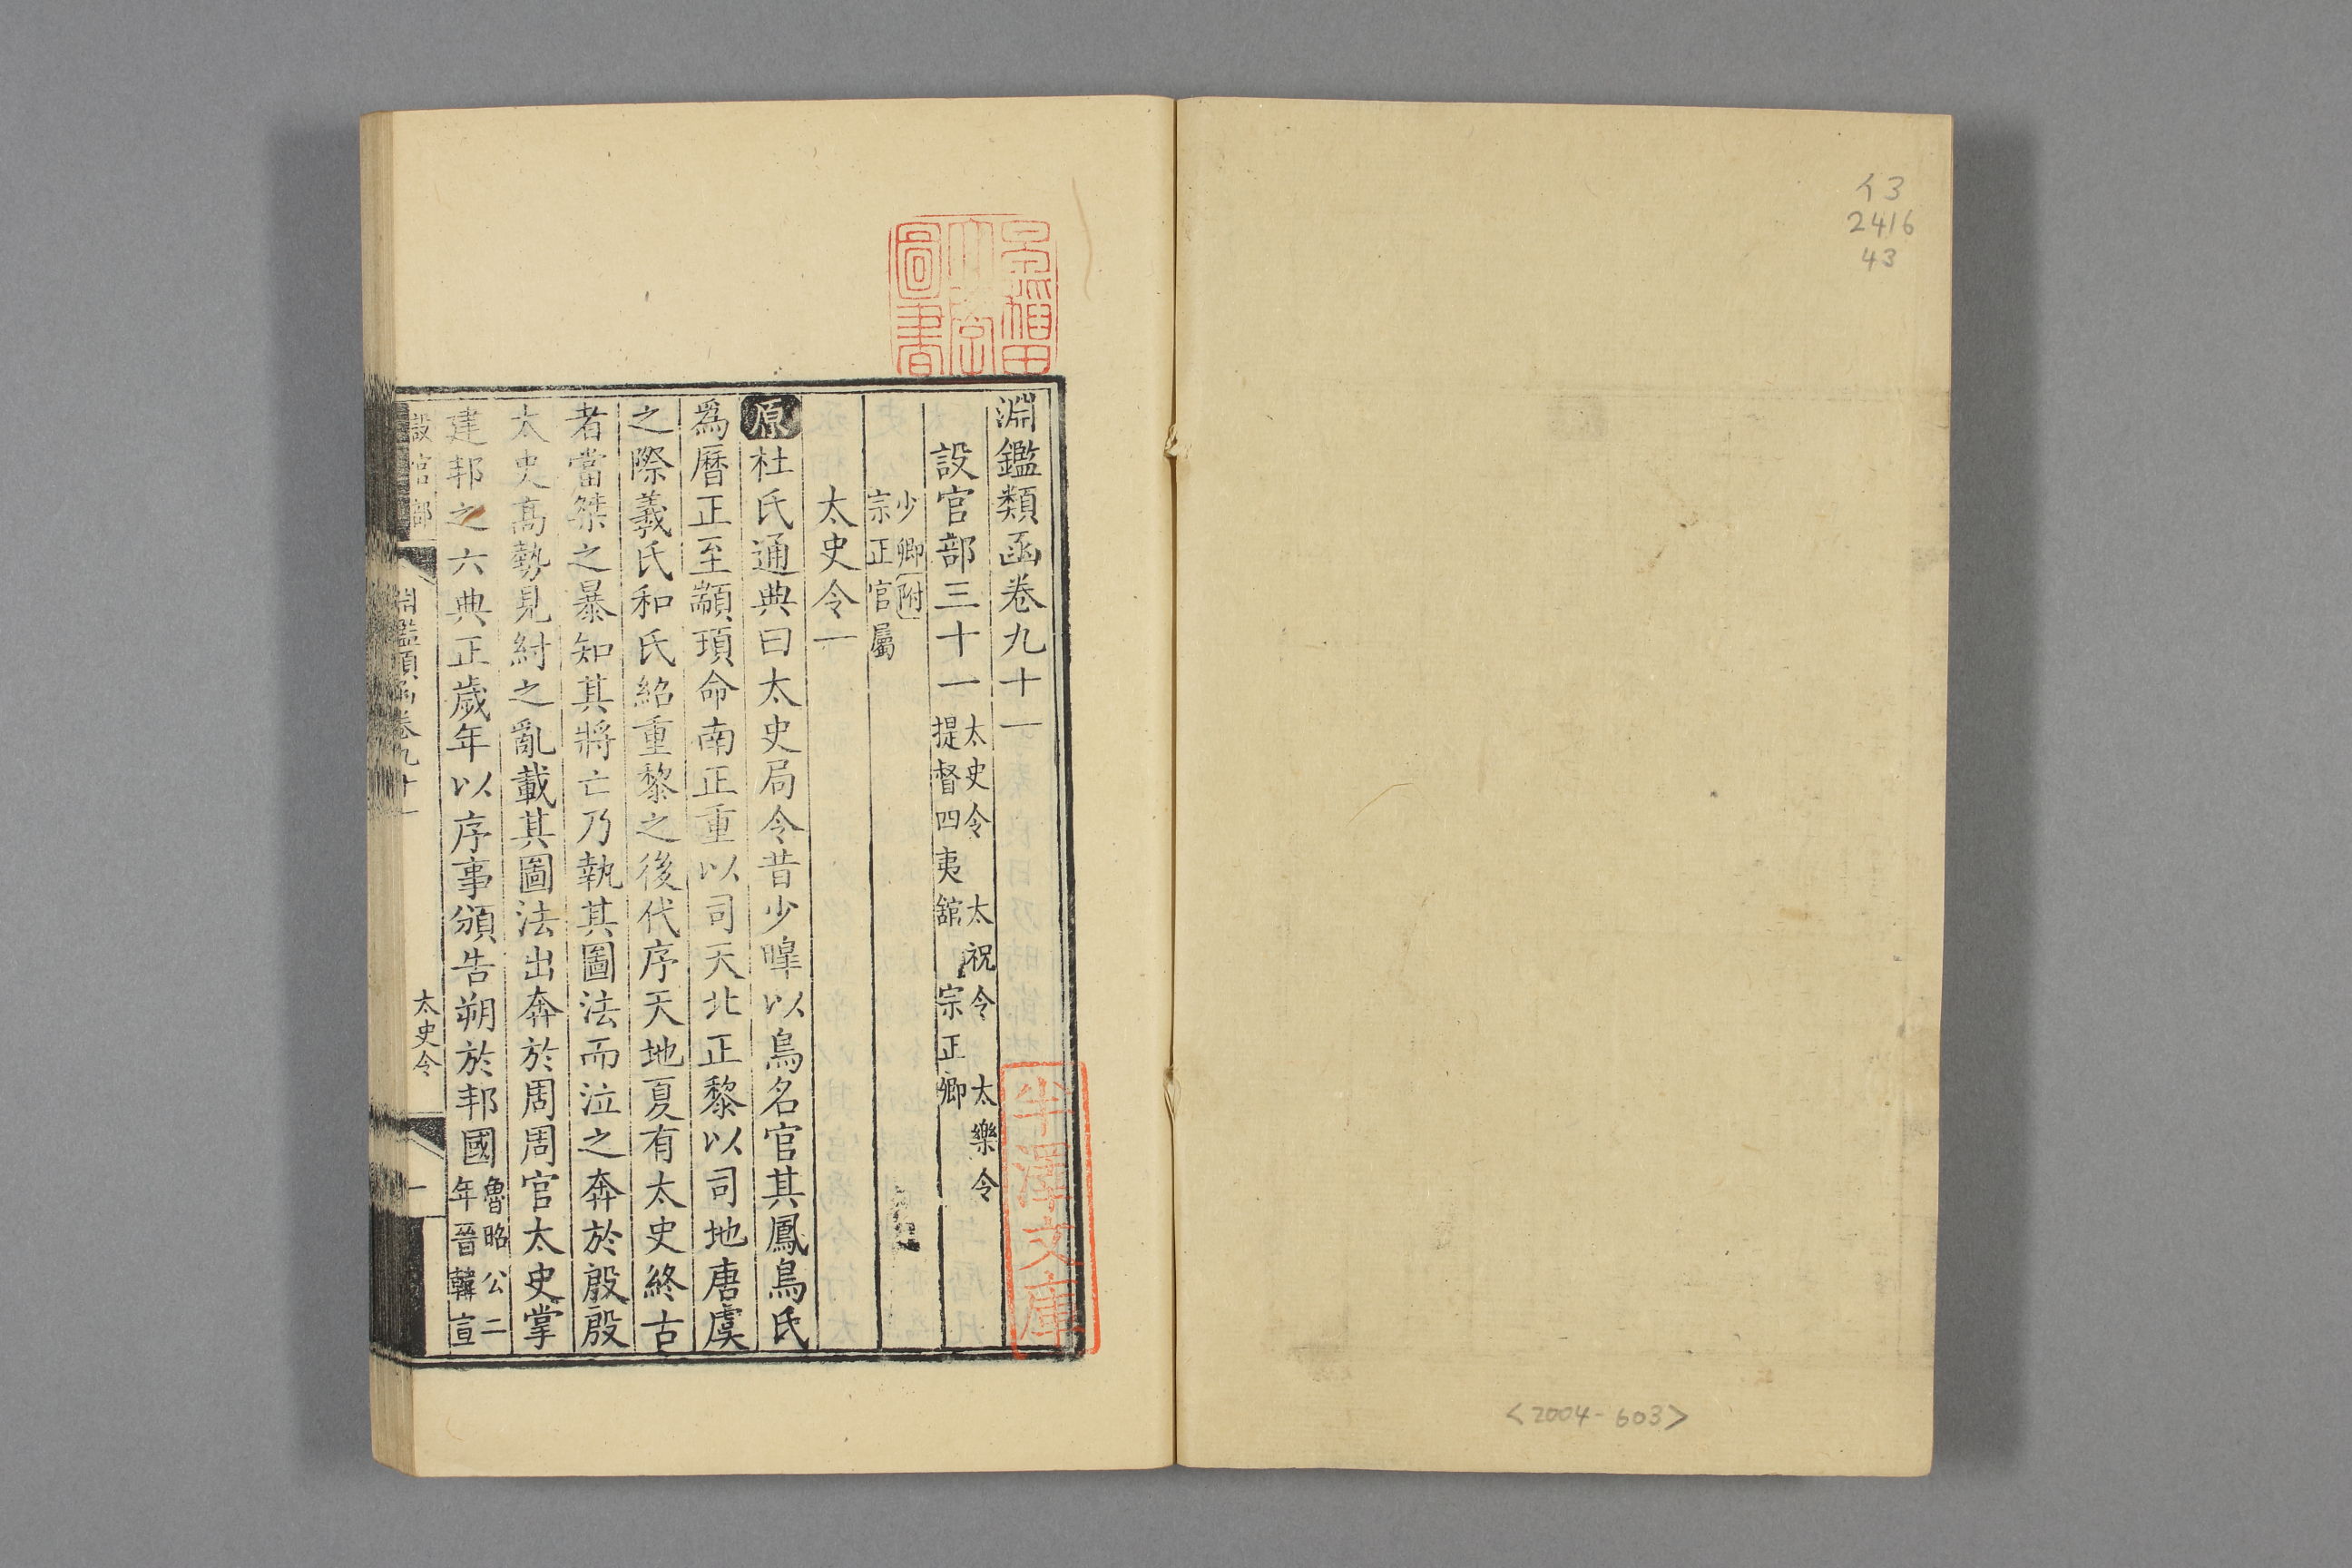 イ3
2416
43
<2004-603>
淵鑑類函卷九十一
設官部三十一 太史令 太祝令 太樂令
提督四夷舘 宗正卿
少卿附
宗正官屬
太史令一
原杜氏通典曰太史局令昔少皥以鳥名官其鳳鳥氏
爲曆正至顓頊命南正重以司天北正黎以司地唐虞
之際羲氏和氏紹重黎之後代序天地夏有太史終古
者當桀之暴知其將亡乃執其圖法而泣之奔於殷殷
太史高勢見紂之亂載其圖法出奔於周周官太史掌
建邦之六典正歲年以序事頒告朔於邦國 魯昭公二
年晉韓宣
設官部 淵鑑類函卷九十一 太史令 一
早稻田大學圖書
半澤文庫